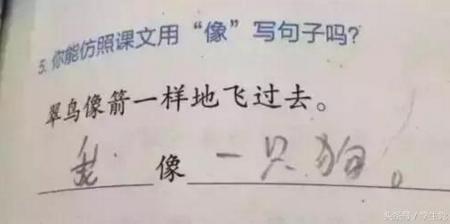 5.你能仿照课文用“像”写句子吗?
翠鸟像箭一样地飞过去。
我像一只狗。
头条号/学生党